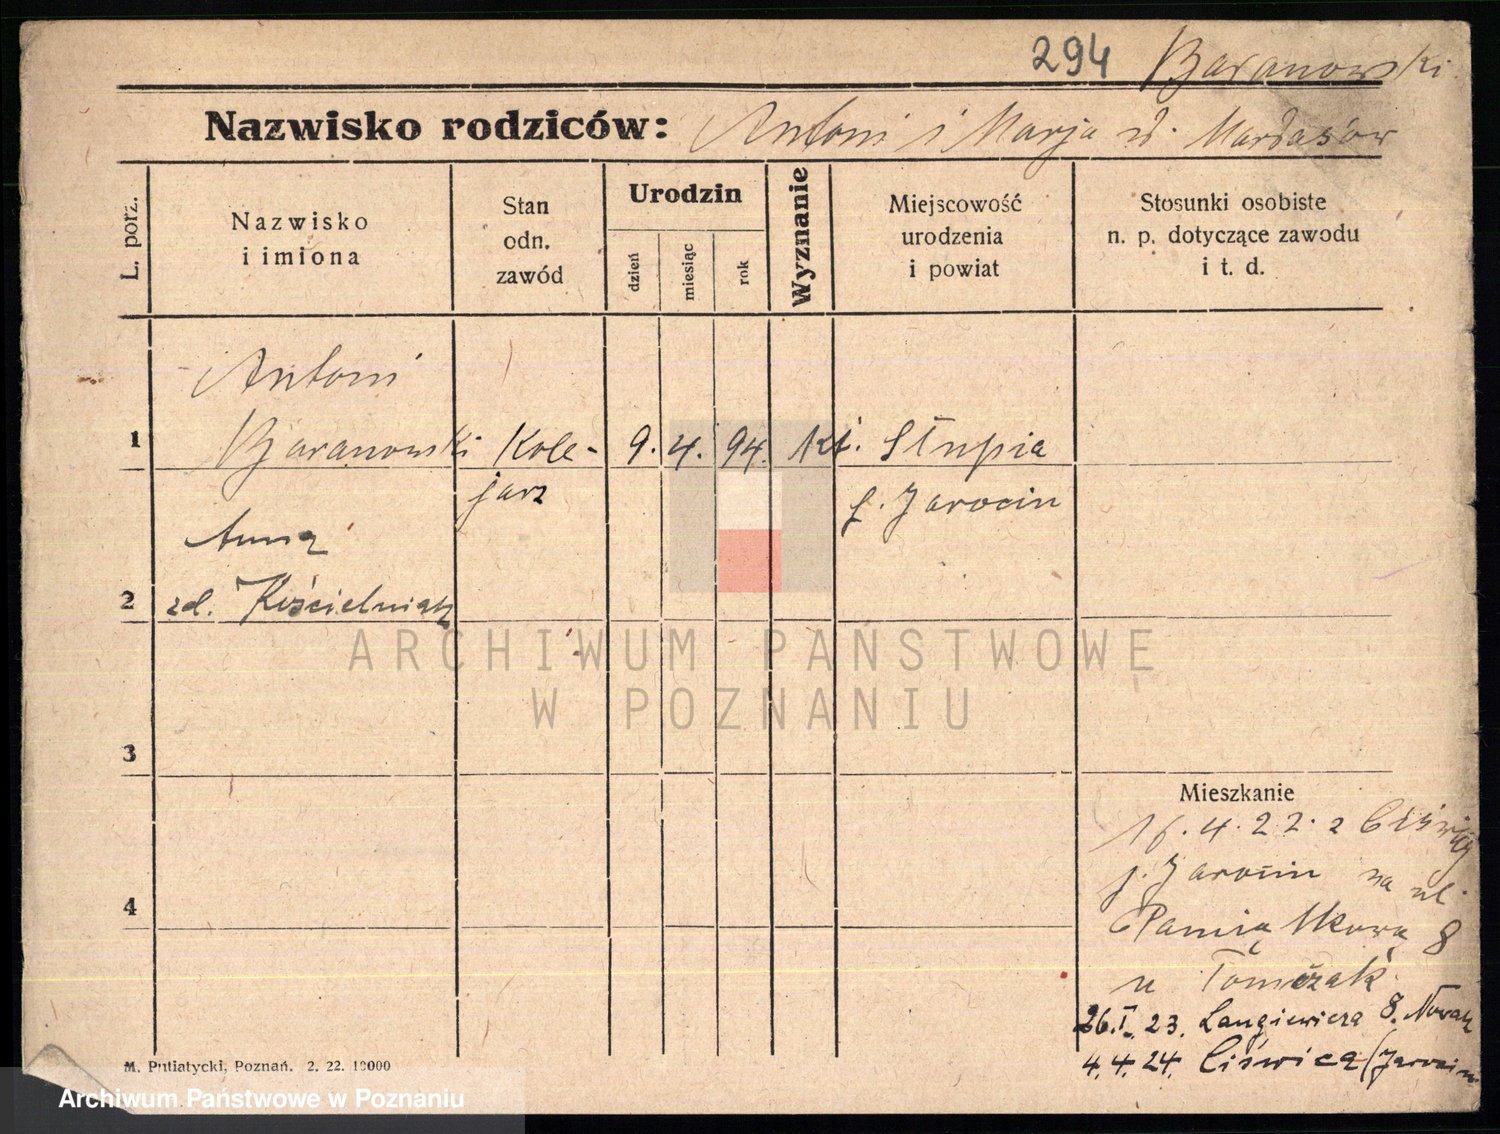 294 Baranowski
Nazwisko rodziców: Antoni i Marja zd. Mardasów
L. porz.
Nazwisko
i imiona
Stan
odn.
zawód
Urodzin
dzień
miesiąc
rok
Wyznanie
Miejscowość
urodzenia
i powiat
Stosunki osobiste
n. p. dotyczące zawodu
i t. d.
Antoni
1 Baranowski Kole- 9. 4. 94. kt. Słupia
jarz p. Jarocin
Anna
2 zd. Kościelniak
ARCHIWUM PAŃSTWOWE
W POZNANIU
3
Mieszkanie
4.22. z Ciświcy
p. Jarocin na ul.
4
Pamiątkową 8
u Tomczak
26.I.23. Langiewicza 8. Nowak
4.4.24. Ciświca (Jarocin
M. Putiatycki, Poznań. 2. 22. 10000
Archiwum Państwowe w Poznaniu